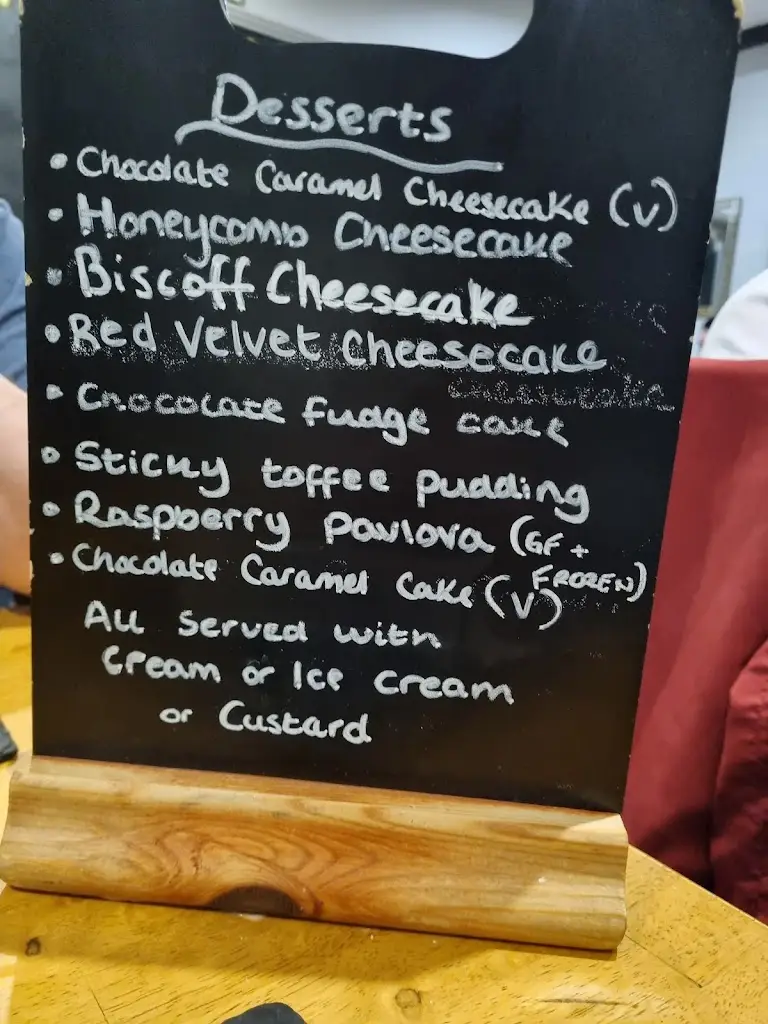 Desserts
• Chocolate Caramel Cheesecake (V)
• Honeycomb Cheesecake
• Biscoff Cheesecake
• Red Velvet Cheesecake
cheesecake
• Chocolate fudge cake
• Sticky toffee pudding
• Raspberry Pavlova (GF + FROZEN)
• Chocolate Caramel Cake (V)
All served with
Cream or Ice cream
or Custard